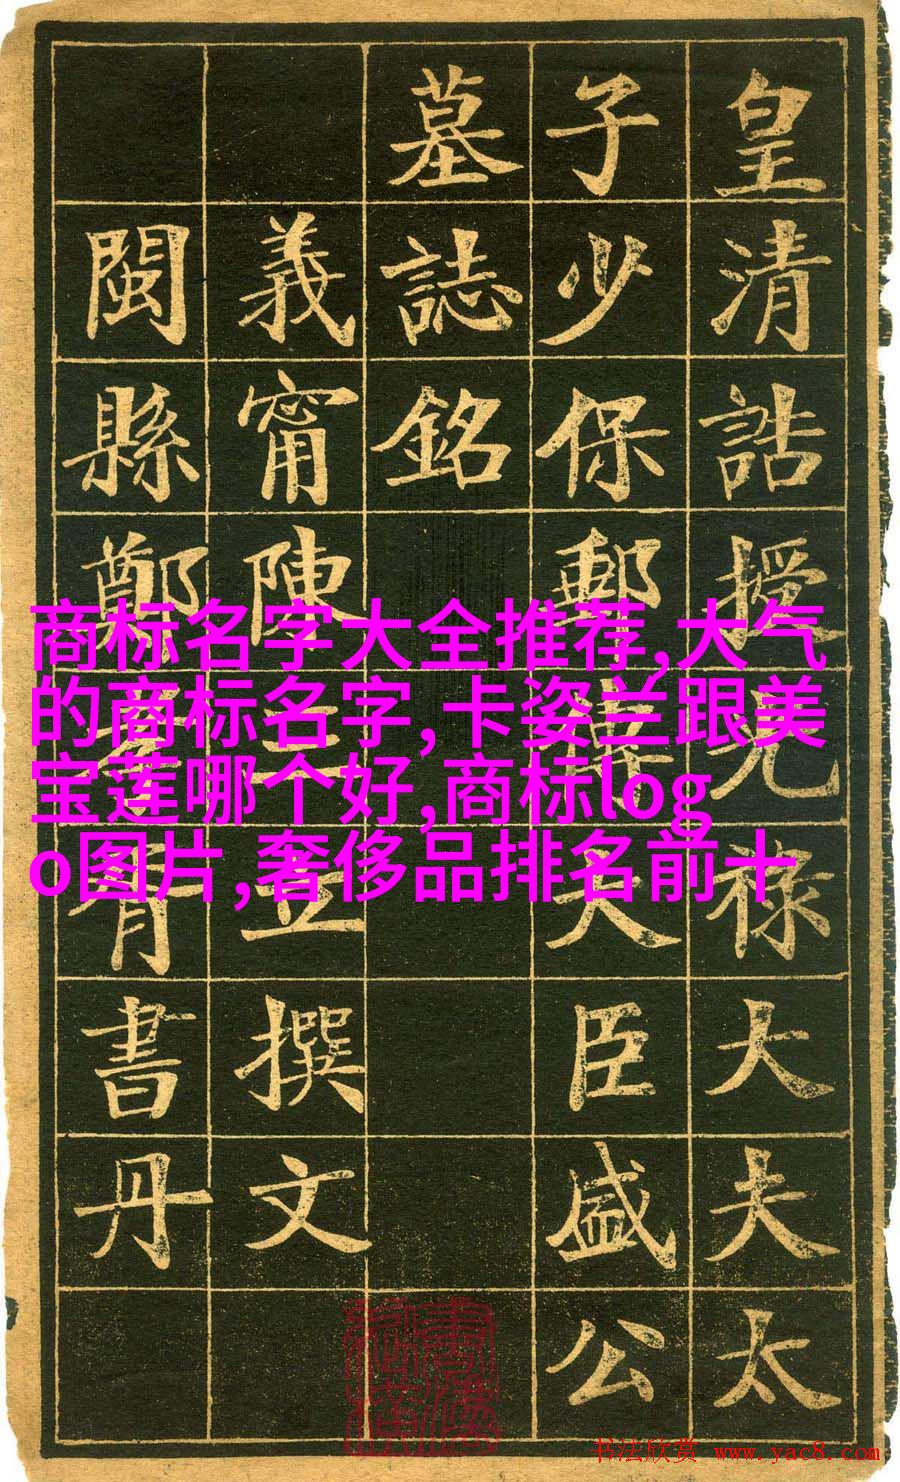 皇清誥授光祿大夫太
子少保郵傳大臣盛公
墓誌銘
義甯陳三立撰文
閩縣鄭孝胥書丹
商标名字大全推荐,大气
的商标名字,卡姿兰跟美
宝莲哪个好,商标log
o图片,奢侈品排名前十
书法欣赏 www.yac8.com